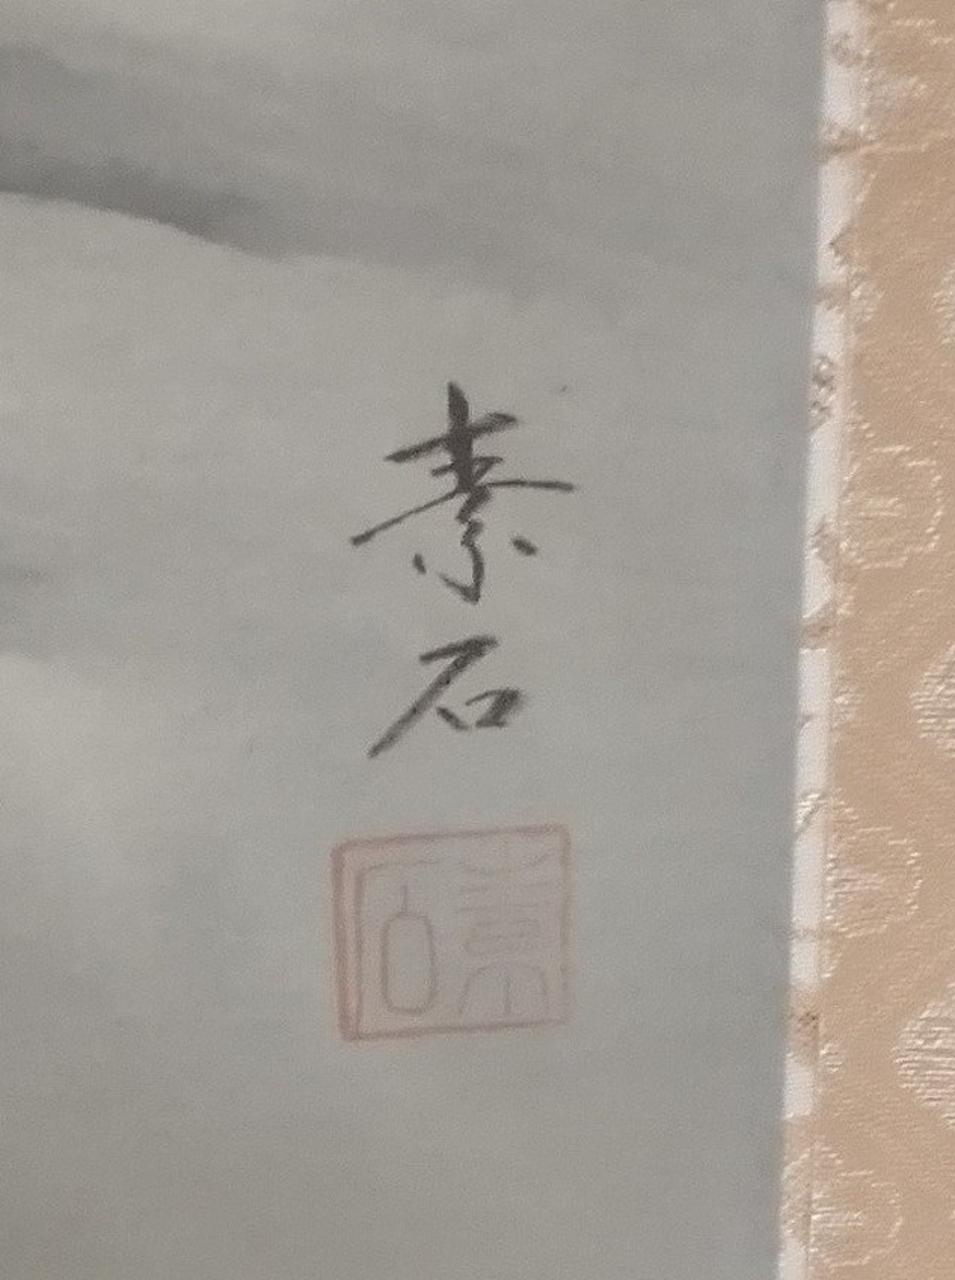 素石
素石